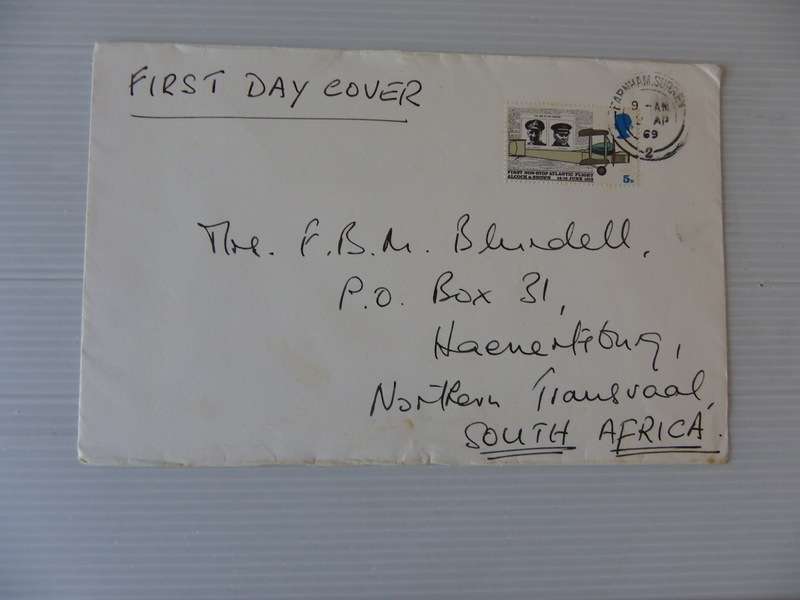 FIRST DAY COVER
FARNHAM, SURREY
9 - AM
2 AP
69
-2-
FIRST NON-STOP ATLANTIC FLIGHT
ALCOCK & BROWN 14-15 JUNE 1919
5D
Mrs. F.B.M. Blundell,
P.O. Box 31,
Haenertsburg,
Northern Transvaal,
SOUTH AFRICA.